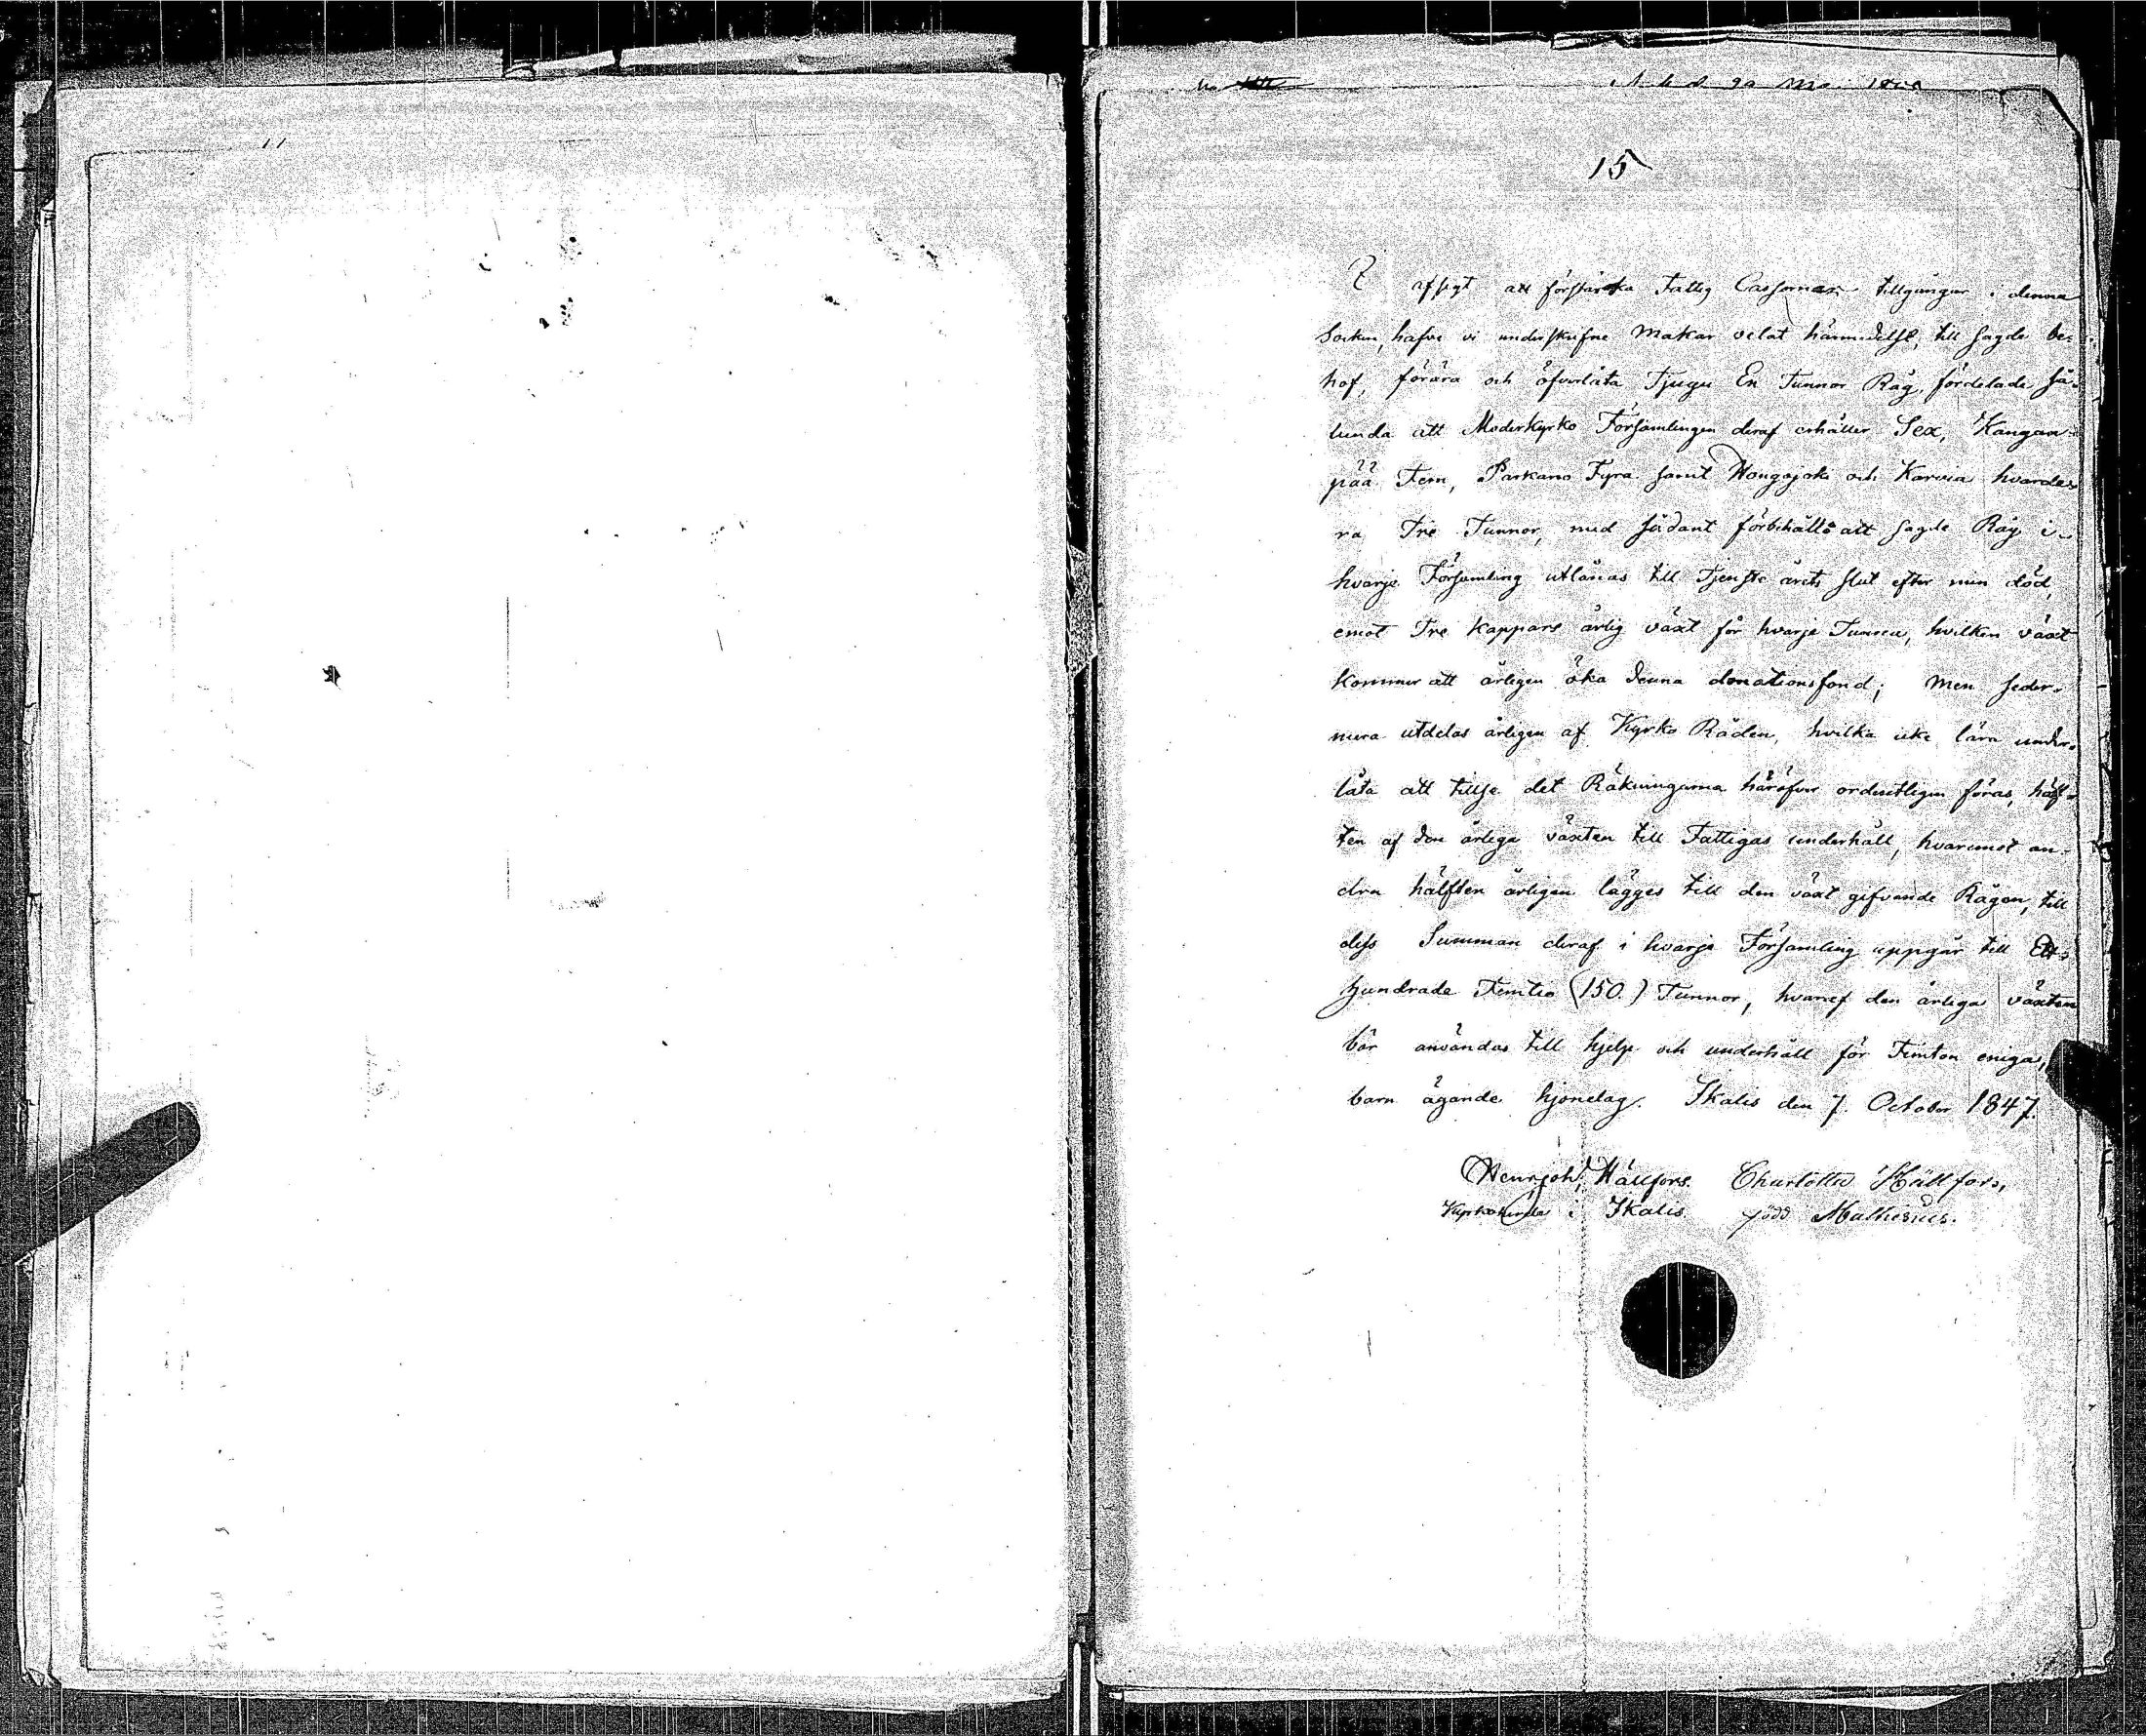 15
I afsigt att förstärka Fattig Cassornas tillgångar i denna
Socken, hafve vi underskrifne Makar velat härmedelst, till sagde be=
hof, förära och öfverlåta Tjugu En Tunnor Råg, fördelade så=
lunda att Moderkyrko Församlingen deraf erhåller Sex, Kangan=
pää Fem, Parkano Fyra samt Hongojoki och Karvia hvarde=
ra Tre Tunnor, med sådant förbehåll att sagde Råg i
hvarje Församling utlånas till Tjenste årets slut efter min död,
emot Tre Kappars årlig växt för hvarje Tunna, hvilken växt
kommer att årligen öka denna donationsfond; Men seder=
mera utdelas årligen af Kyrko Råden, hvilka icke lära under=
låta att tillse det Räkningarna häröfver ordentligen föras, hälf=
ten af den årliga växten till Fattigas underhåll, hvaremot an=
dra hälften årligen lägges till den växt gifvande Rågen, till
dess Summan deraf i hvarje Församling uppgår till Ett=
hundrade Femtio (150.) Tunnor, hvaraf den årliga växten
bör användas till hjelp och underhåll för Femton eniga,
barn ägande hjonelag. Ikalis den 7. October 1847.
Henr. Joh. Hällfors. Charlotta Hällfors,
Kyrkoherde i Ikalis. född Mathesius.